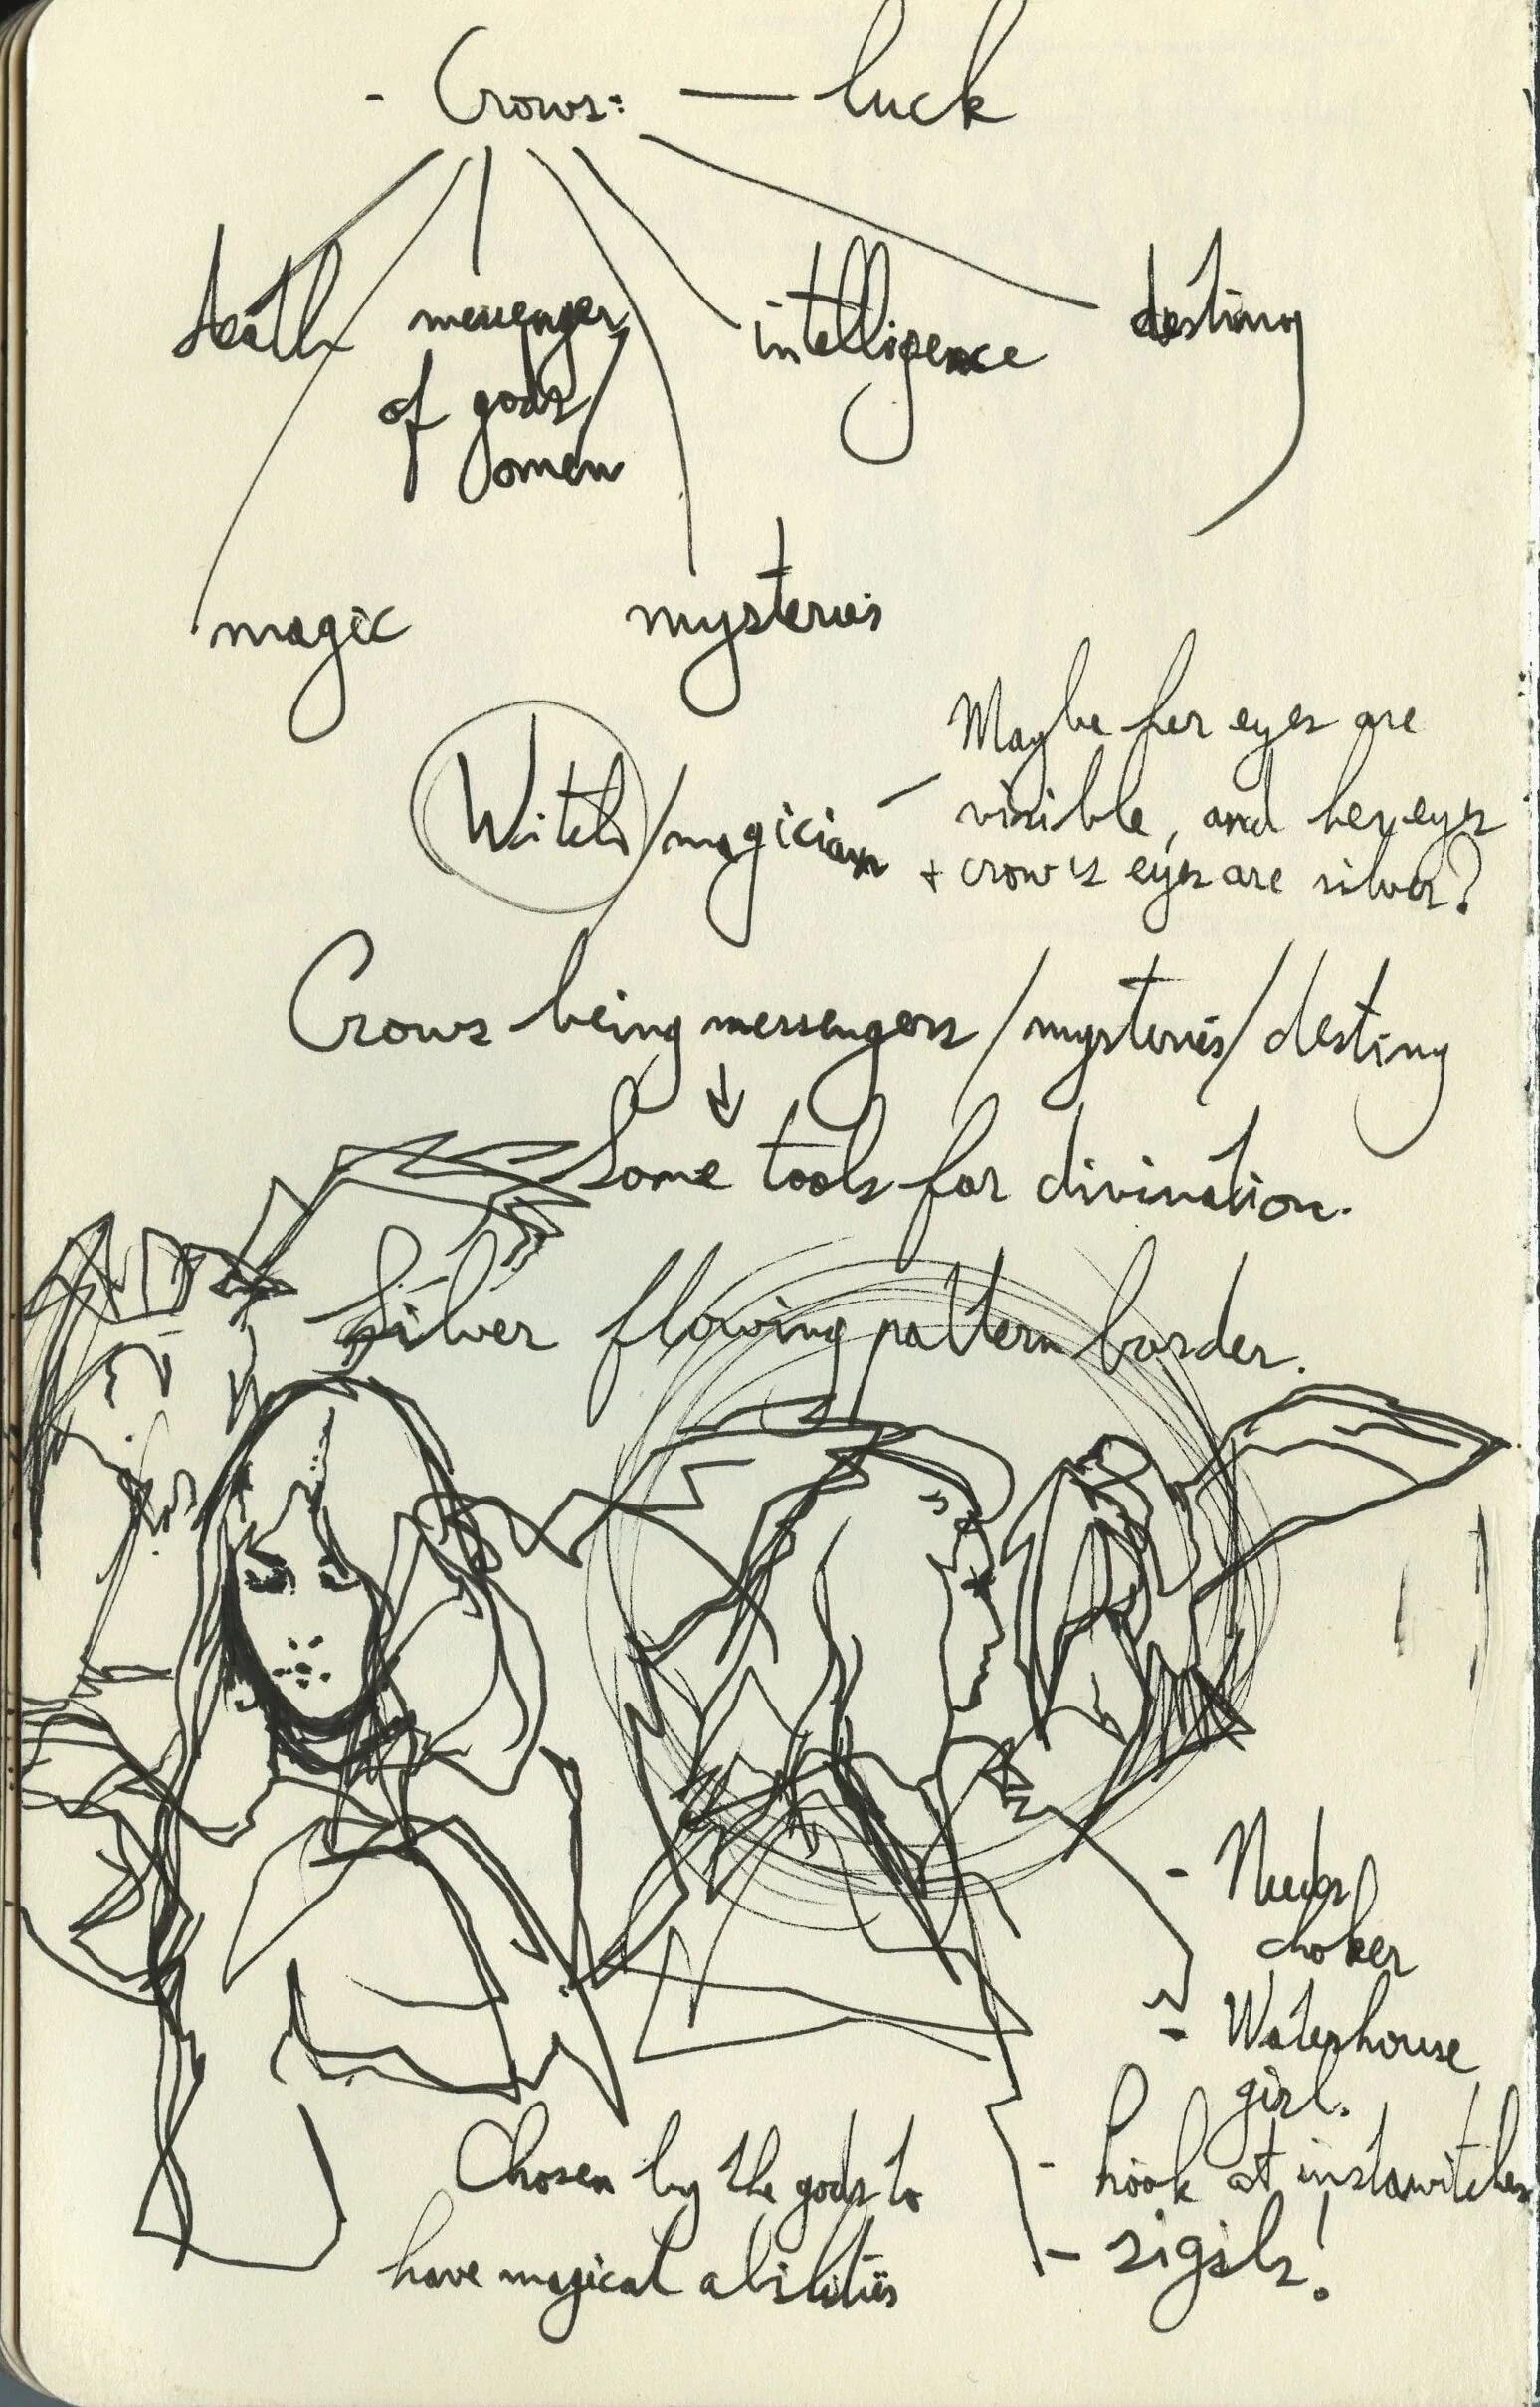 - Crows: — luck
death
messenger
of gods/
omen
intelligence
destiny
magic
mysteries
Witch/magician
Maybe her eyes are
visible, and her eyes
+ crow's eyes are silver?
Crows being messengers/mysteries/destiny
↓
Some tools for divination.
Silver flowing pattern border.
choker
- Waterhouse
girl.
Chosen by the gods to
have magical abilities
- look at instawitches
- sigils!